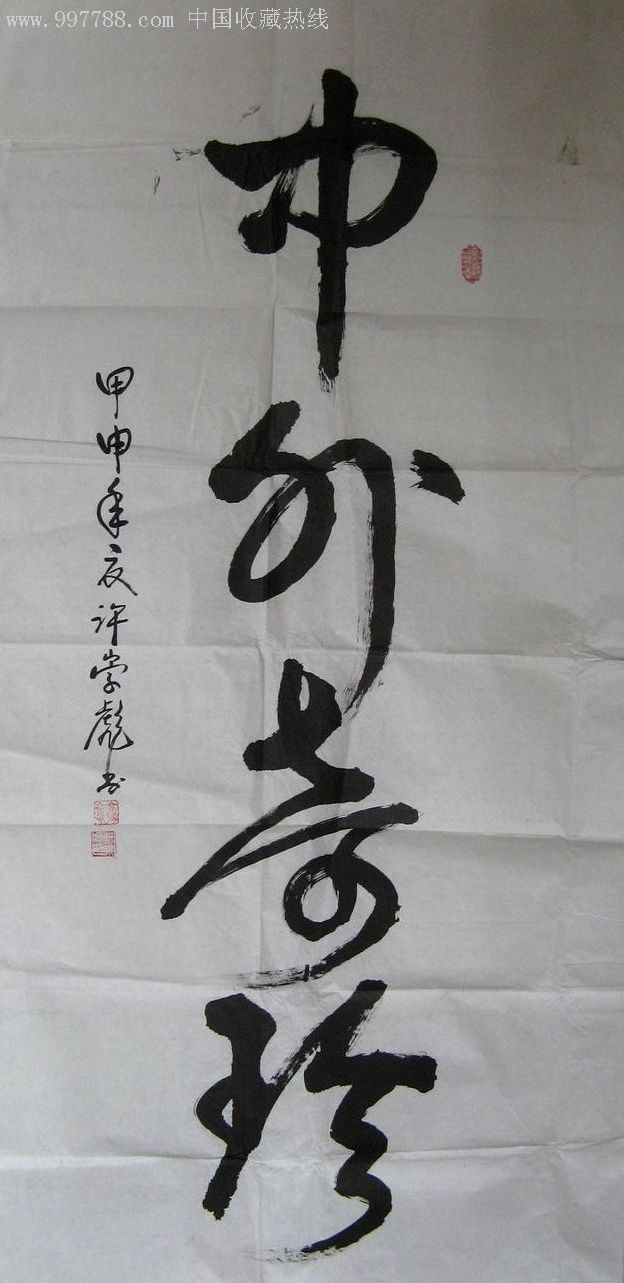 www.997788.com 中国收藏热线
中外奇珍
甲申年夏许学彪书